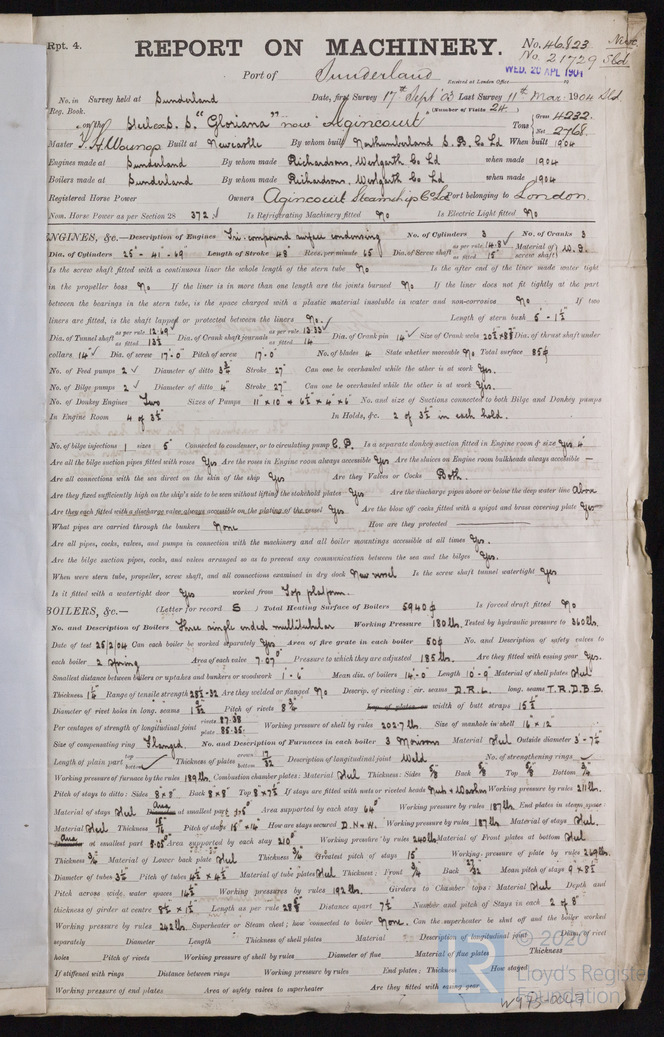 Rpt. 4.
REPORT ON MACHINERY.
No. 46823
No. 21729 Sld
Port of Sunderland
Received at London Office
WED. 20 APL 1904
No. in Survey held at Sunderland Date, first Survey 17th Sept 03 Last Survey 11th Mar 1904
Reg. Book.
(Number of Visits 24)
on the Steel S.S. "Gloriana" now "Agincourt" Tons Gross 4232. Net 2768.
Master Built at Newcastle By whom built Northumberland S.B. Co Ld When built 1904
Engines made at Sunderland By whom made Richardsons, Westgarth Co Ld when made 1904
Boilers made at Sunderland By whom made Richardsons, Westgarth Co Ld when made 1904
Registered Horse Power Owners Agincourt Steamship Co Ld Port belonging to London.
Nom. Horse Power as per Section 28 372 Is Refrigerating Machinery fitted No Is Electric Light fitted No
ENGINES, &c.—Description of Engines Tri-compound surface condensing No. of Cylinders 3 No. of Cranks 3
Dia. of Cylinders 25" - 41" - 69" Length of Stroke 48" Revs. per minute 65 Dia. of Screw shaft as per rule 14.8 as fitted 15" Material of screw shaft
Is the screw shaft fitted with a continuous liner the whole length of the stern tube No Is the after end of the liner made water tight
in the propeller boss No If the liner is in more than one length are the joints burned No If the liner does not fit tightly at the part
between the bearings in the stern tube, is the space charged with a plastic material insoluble in water and non-corrosive No If two
liners are fitted, is the shaft lapped or protected between the liners No. Length of stern bush 5'-1½"
Dia. of Tunnel shaft as per rule 12.69 as fitted 13½ Dia. of Crank shaft journals as per rule 13.33 as fitted 14 Dia. of Crank pin 14" Size of Crank webs Dia. of thrust shaft under
collars 14 Dia. of screw 17'-0" Pitch of screw 17'-0" No. of blades 4 State whether moveable No Total surface 85
No. of Feed pumps 2 Diameter of ditto Stroke 27" Can one be overhauled while the other is at work Yes.
No. of Bilge pumps 2 Diameter of ditto 4" Stroke 27" Can one be overhauled while the other is at work Yes.
No. of Donkey Engines Two Sizes of Pumps No. and size of Suctions connected to both Bilge and Donkey pumps
In Engine Room 4 of 3½" In Holds, &c. 2 of 3½" in each hold.
No. of bilge injections 1 sizes 5" Connected to condenser, or to circulating pump C.P. Is a separate donkey suction fitted in Engine room & size Yes 4"
Are all the bilge suction pipes fitted with roses Yes Are the roses in Engine room always accessible Yes Are the sluices on Engine room bulkheads always accessible —
Are all connections with the sea direct on the skin of the ship Yes Are they Valves or Cocks Both.
Are they fixed sufficiently high on the ship's side to be seen without lifting the stokehold plates Yes Are the discharge pipes above or below the deep water line Above
Are they each fitted with a discharge valve always accessible on the plating of the vessel Yes. Are the blow off cocks fitted with a spigot and brass covering plate Yes
What pipes are carried through the bunkers None How are they protected
Are all pipes, cocks, valves, and pumps in connection with the machinery and all boiler mountings accessible at all times Yes.
Are the bilge suction pipes, cocks, and valves arranged so as to prevent any communication between the sea and the bilges Yes.
When were stern tube, propeller, screw shaft, and all connections examined in dry dock New vessel Is the screw shaft tunnel watertight Yes
Is it fitted with a watertight door Yes worked from Top platform.
BOILERS, &c.— (Letter for record S) Total Heating Surface of Boilers 5940 Is forced draft fitted No
No. and Description of Boilers Three single ended multitubular Working Pressure 180 lbs. Tested by hydraulic pressure to 360 lbs.
Date of test 25/2/04 Can each boiler be worked separately Yes Area of fire grate in each boiler 50 No. and Description of safety valves to
each boiler 2 spring Area of each valve 7.07" Pressure to which they are adjusted 185 lbs. Are they fitted with easing gear Yes.
Smallest distance between boilers or uptakes and bunkers or woodwork 1'-6" Mean dia. of boilers 14'-0" Length 10'-9" Material of shell plates Steel
Thickness Range of tensile strength 28½-32 Are they welded or flanged No Descrip. of riveting: cir. seams D.R.L. long. seams T.R.D.B.S.
Diameter of rivet holes in long. seams Pitch of rivets width of butt straps 15½"
Per centages of strength of longitudinal joint rivets 87.38 plate 85.35. Working pressure of shell by rules 202.7 lbs. Size of manhole in shell 16" x 12"
Size of compensating ring Flanged. No. and Description of Furnaces in each boiler 3 Morisons Material Steel Outside diameter 3'-7½"
Length of plain part top bottom Thickness of plates crown bottom 17/32 Description of longitudinal joint Weld No. of strengthening rings
Working pressure of furnace by the rules 189 lbs. Combustion chamber plates: Material Steel Thickness: Sides 5/8 Back 5/8 Top 5/8 Bottom
Pitch of stays to ditto: Sides 8"x8" Back 8"x8" Top 8"x7½" If stays are fitted with nuts or riveted heads Nuts & Washers Working pressure by rules 211 lbs.
Material of stays Steel Area at smallest part Area supported by each stay 64" Working pressure by rules 187 lbs. End plates in steam space:
Material Steel Thickness 15/16 Pitch of stays 15"x14" How are stays secured D.N.&W. Working pressure by rules 187 lbs. Material of stays Steel.
Area at smallest part 5.05 Area supported by each stay 210" Working pressure by rules 240 lbs Material of Front plates at bottom Steel
Thickness Material of Lower back plate Steel Thickness Greatest pitch of stays 15 Working pressure of plate by rules 249 lbs.
Diameter of tubes 3½ Pitch of tubes 4½x4½ Material of tube plates Steel Thickness: Front Back 27/32 Mean pitch of stays 9"x8½"
Pitch across wide water spaces 14½ Working pressures by rules 192 lbs. Girders to Chamber tops: Material Steel Depth and
thickness of girder at centre Length as per rule Distance apart 7½" Number and pitch of Stays in each 2 of 8"
Working pressure by rules 242 lbs. Superheater or Steam chest; how connected to boiler None. Can the superheater be shut off and the boiler worked
separately Diameter Length Thickness of shell plates Material Description of longitudinal joint Diam. of rivet
holes Pitch of rivets Working pressure of shell by rules Diameter of flue Material of flue plates Thickness
If stiffened with rings Distance between rings Working pressure by rules End plates: Thickness How stayed
Working pressure of end plates Area of safety valves to superheater Are they fitted with easing gear
© 2020
Lloyd's Register
Foundation
W993-0047